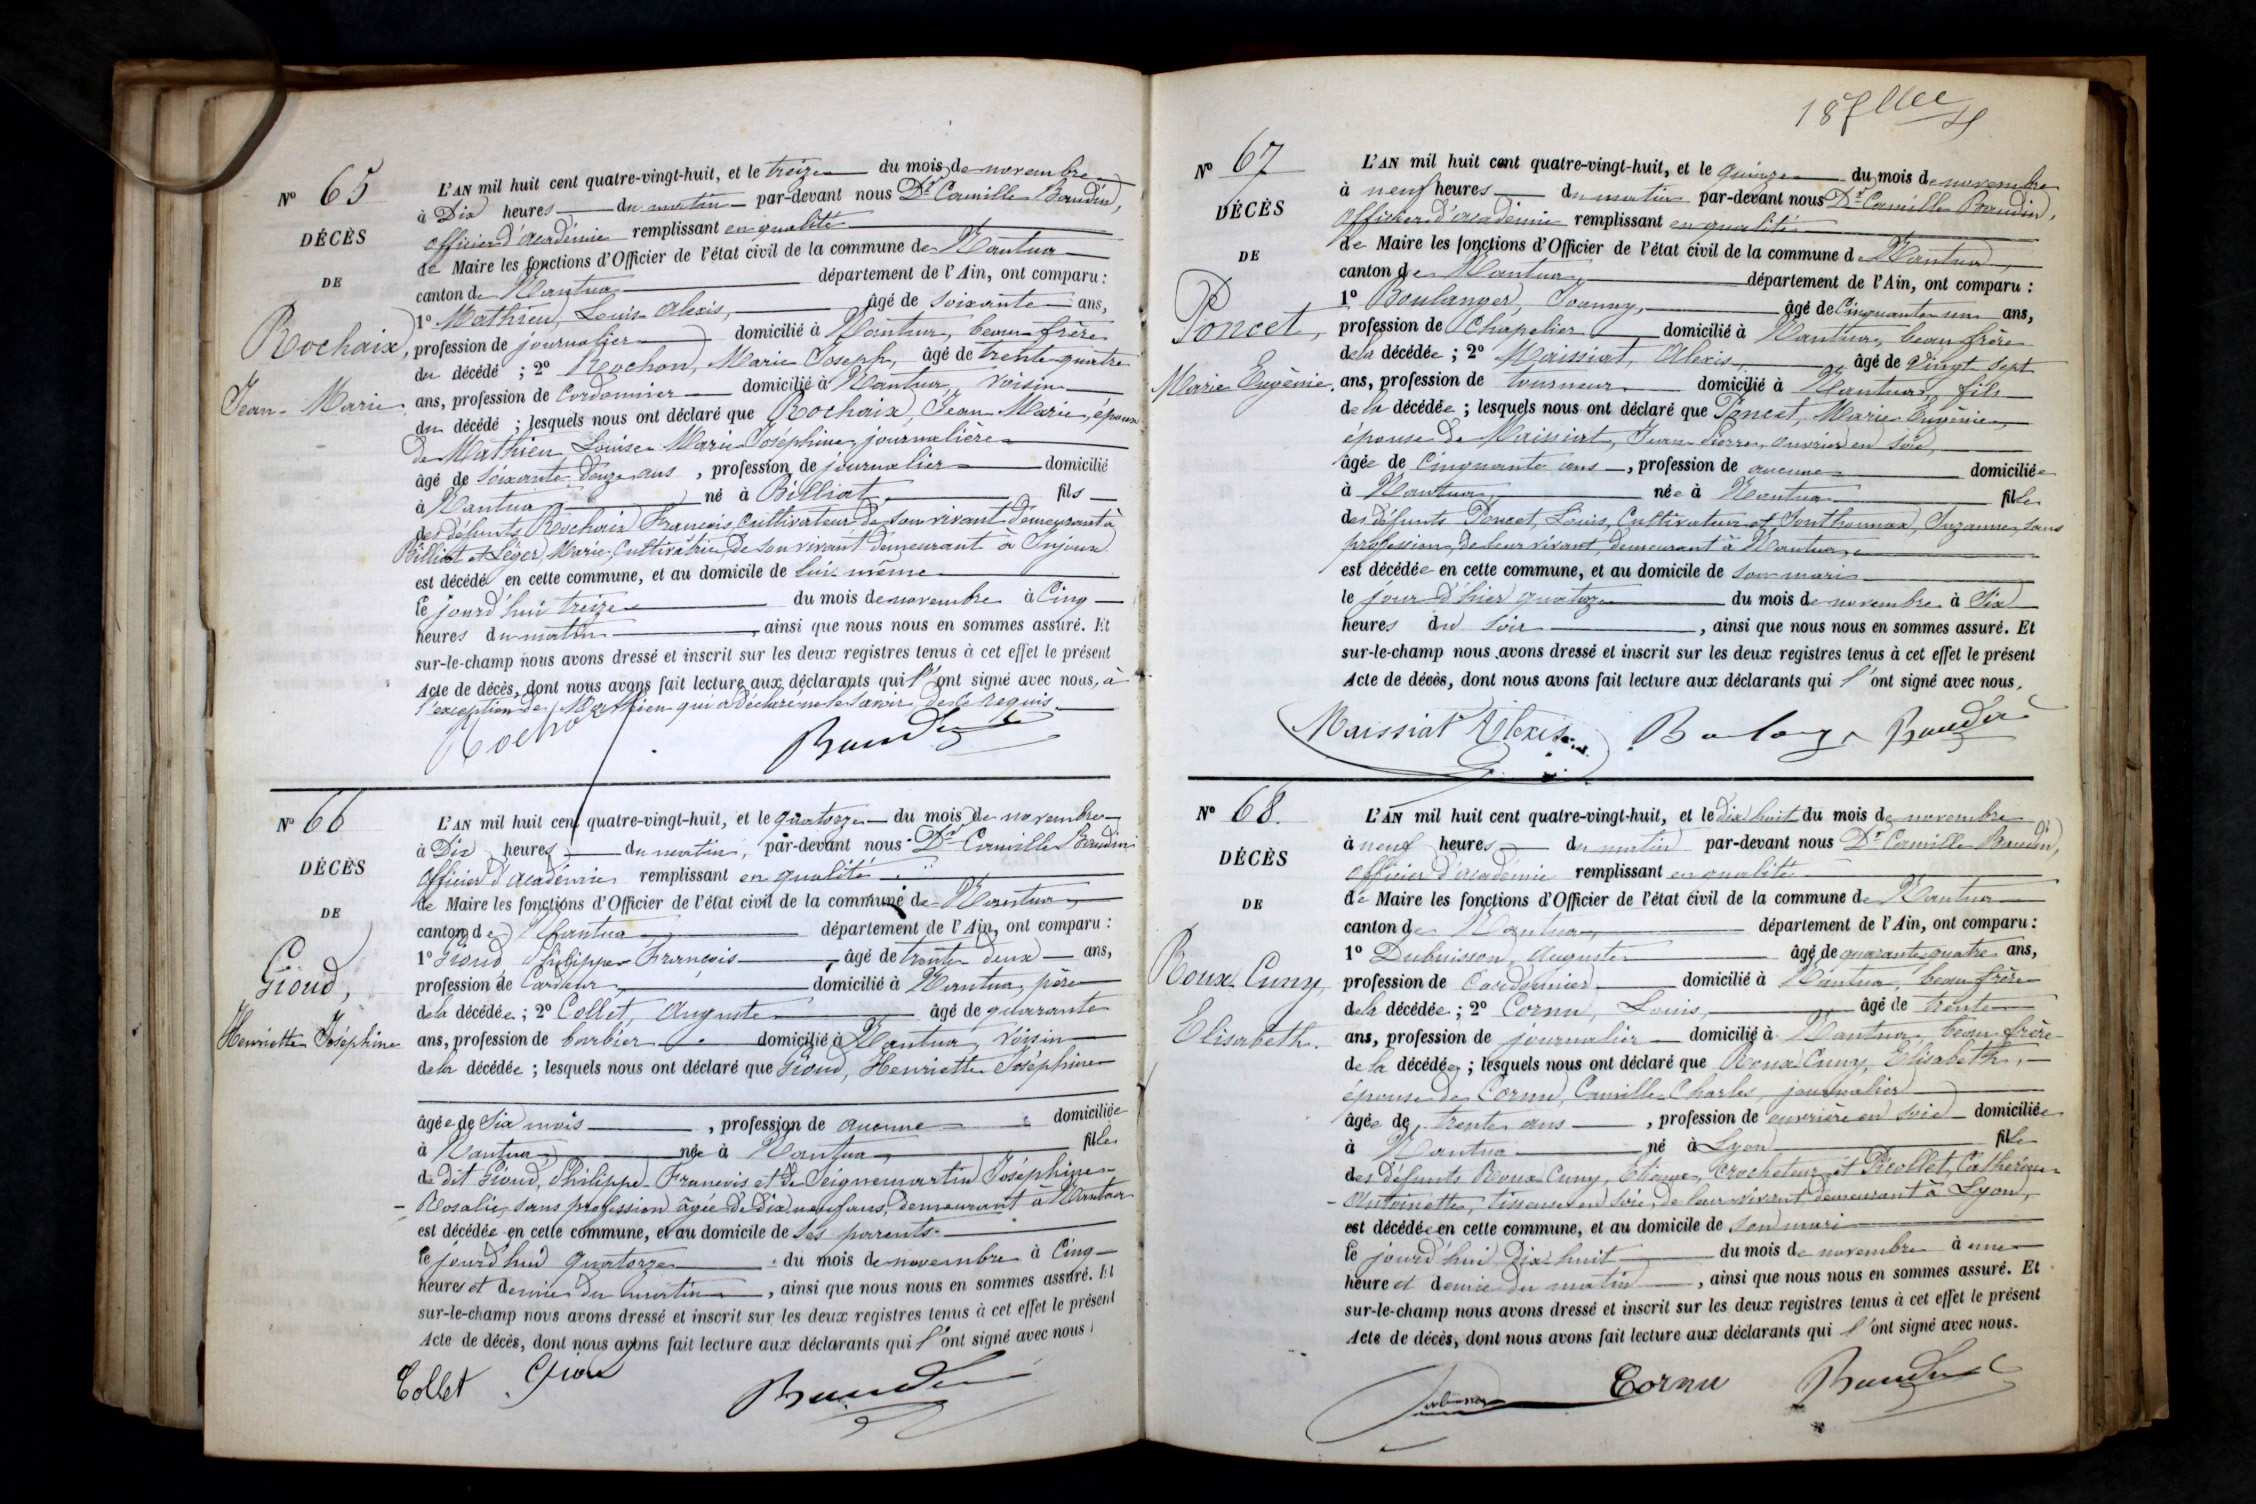 N° 65
DÉCÈS
DE
Rochaix,
Jean-Marie
L'AN mil huit cent quatre-vingt-huit, et le treize du mois de novembre
à Dix heures du matin par-devant nous Dr Camille Baudin,
officier d'académie remplissant en qualité
de Maire les fonctions d'Officier de l'état civil de la commune de Nantua
canton de Nantua département de l'Ain, ont comparu :
1° Mathieu, Louis Alexis, âgé de soixante ans,
profession de journalier domicilié à Nantua, beau frère
du décédé ; 2° Rochon, Marie Joseph, âgé de trente quatre
ans, profession de Cordonnier domicilié à Nantua, voisin
du décédé ; lesquels nous ont déclaré que Rochaix, Jean Marie, époux
de Mathieu Louise Marie Joséphine, journalière
âgé de soixante douze ans, profession de journalier domicilié
à Nantua né à Billiat, fils
des défunts Rochaix François, Cultivateur de son vivant demeurant à
Billiat et Léger, Marie, Cultivatrice de son vivant demeurant à Injoux
est décédé en cette commune, et au domicile de lui-même
le jourd'hui treize du mois de novembre à Cinq
heures du matin, ainsi que nous nous en sommes assuré. Et
sur-le-champ nous avons dressé et inscrit sur les deux registres tenus à cet effet le présent
Acte de décès, dont nous avons fait lecture aux déclarants qui l'ont signé avec nous, à
l'exception de Mathieu qui a déclaré ne le savoir de ce requis.
Rochon Baudin
N° 66
DÉCÈS
DE
Gioud,
Henriette Joséphine
L'AN mil huit cent quatre-vingt-huit, et le quatorze du mois de novembre
à Dix heures du matin, par-devant nous Dr Camille Baudin
officier d'académie remplissant en qualité
de Maire les fonctions d'Officier de l'état civil de la commune de Nantua
canton de Nantua département de l'Ain, ont comparu :
1° Gioud Philippe François, âgé de trente deux ans,
profession de Cardeur domicilié à Nantua, père
de la décédée ; 2° Collet, Auguste âgé de quarante
ans, profession de barbier domicilié à Nantua, voisin
de la décédée ; lesquels nous ont déclaré que Gioud, Henriette Joséphine
âgée de Six mois, profession de aucune domiciliée
à Nantua, née à Nantua, fille
de dit Gioud, Philippe François et de Seignemartin Joséphine
Rosalie, sans profession âgée de dix neuf ans, demeurant à Nantua
est décédée en cette commune, et au domicile de ses parents
le jourd'hui quatorze du mois de novembre à Cinq
heures et demie du matin, ainsi que nous nous en sommes assuré. Et
sur-le-champ nous avons dressé et inscrit sur les deux registres tenus à cet effet le présent
Acte de décès, dont nous avons fait lecture aux déclarants qui l'ont signé avec nous
Collet Gioud Baudin
N° 67
DÉCÈS
DE
Poncet,
Marie Eugénie.
L'AN mil huit cent quatre-vingt-huit, et le quinze du mois de novembre
à neuf heures du matin par-devant nous Dr Camille Baudin,
officier d'académie remplissant en qualité
de Maire les fonctions d'Officier de l'état civil de la commune de Nantua,
canton de Nantua, département de l'Ain, ont comparu :
1° Boulanger, Joanny, âgé de Cinquante un ans,
profession de Chapelier domicilié à Nantua, beau frère
de la décédée ; 2° Maissiat, Alexis, âgé de vingt sept
ans, profession de tourneur domicilié à Nantua, fils
de la décédée ; lesquels nous ont déclaré que Poncet, Marie Eugénie,
épouse de Maissiat, Jean Pierre, ouvrier en soie,
âgée de Cinquante ans, profession de aucune domiciliée
à Nantua, née à Nantua fille
des défunts Poncet, Louis, Cultivateur et Jonthamaux, Suzanne, sans
profession, de leur vivant, demeurant à Nantua,
est décédée en cette commune, et au domicile de son mari
le jour d'hier quatorze du mois de novembre à Six
heures du soir, ainsi que nous nous en sommes assuré. Et
sur-le-champ nous avons dressé et inscrit sur les deux registres tenus à cet effet le présent
Acte de décès, dont nous avons fait lecture aux déclarants qui l'ont signé avec nous.
Maissiat Alexis Baudin
N° 68.
DÉCÈS
DE
Roux Cuny
Elisabeth.
L'AN mil huit cent quatre-vingt-huit, et le dix huit du mois de novembre
à neuf heures du matin par-devant nous Dr Camille Baudin,
officier d'académie remplissant en qualité
de Maire les fonctions d'Officier de l'état civil de la commune de Nantua
canton de Nantua, département de l'Ain, ont comparu :
1° Dubuisson, Auguste âgé de quarante quatre ans,
profession de Cordonnier domicilié à Nantua, beau frère
de la décédée ; 2° Cornu, Louis, âgé de trente
ans, profession de journalier domicilié à Nantua beau frère
de la décédée ; lesquels nous ont déclaré que Roux Cuny, Elisabeth,
épouse de Cornu, Camille Charles, journalier
âgée de trente ans, profession de ouvrière en soie domiciliée
à Nantua né à Lyon fille
des défunts Roux Cuny, Etienne, Crocheteur et Picollet, Catherine
Antoinette, tisseuse en soie, de leur vivant demeurant à Lyon,
est décédée en cette commune, et au domicile de son mari
le jourd'hui dix huit du mois de novembre à une
heure et demie du matin, ainsi que nous nous en sommes assuré. Et
sur-le-champ nous avons dressé et inscrit sur les deux registres tenus à cet effet le présent
Acte de décès, dont nous avons fait lecture aux déclarants qui l'ont signé avec nous.
Cornu Baudin